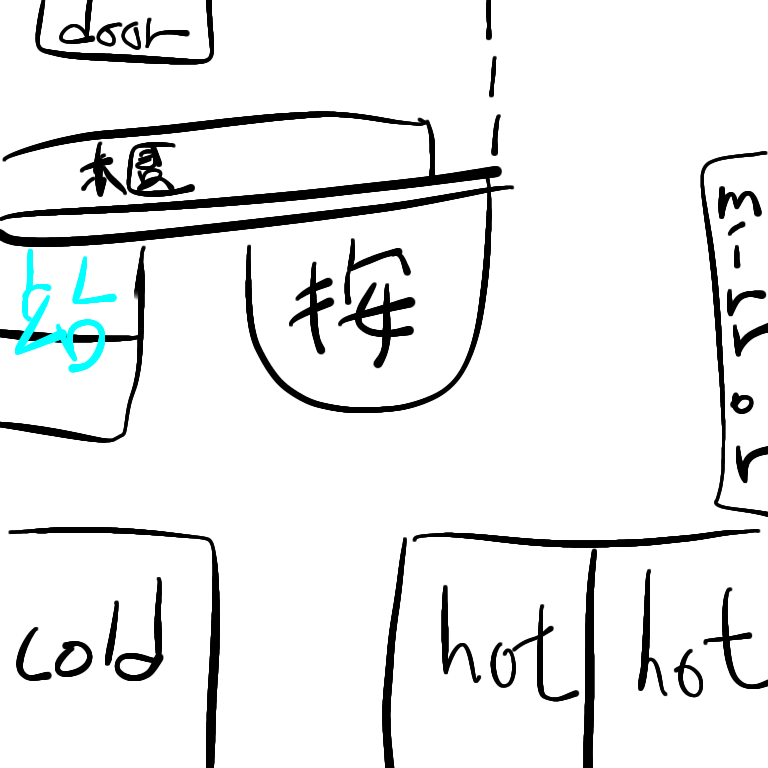 door
按
mirror
cold
hot
hot